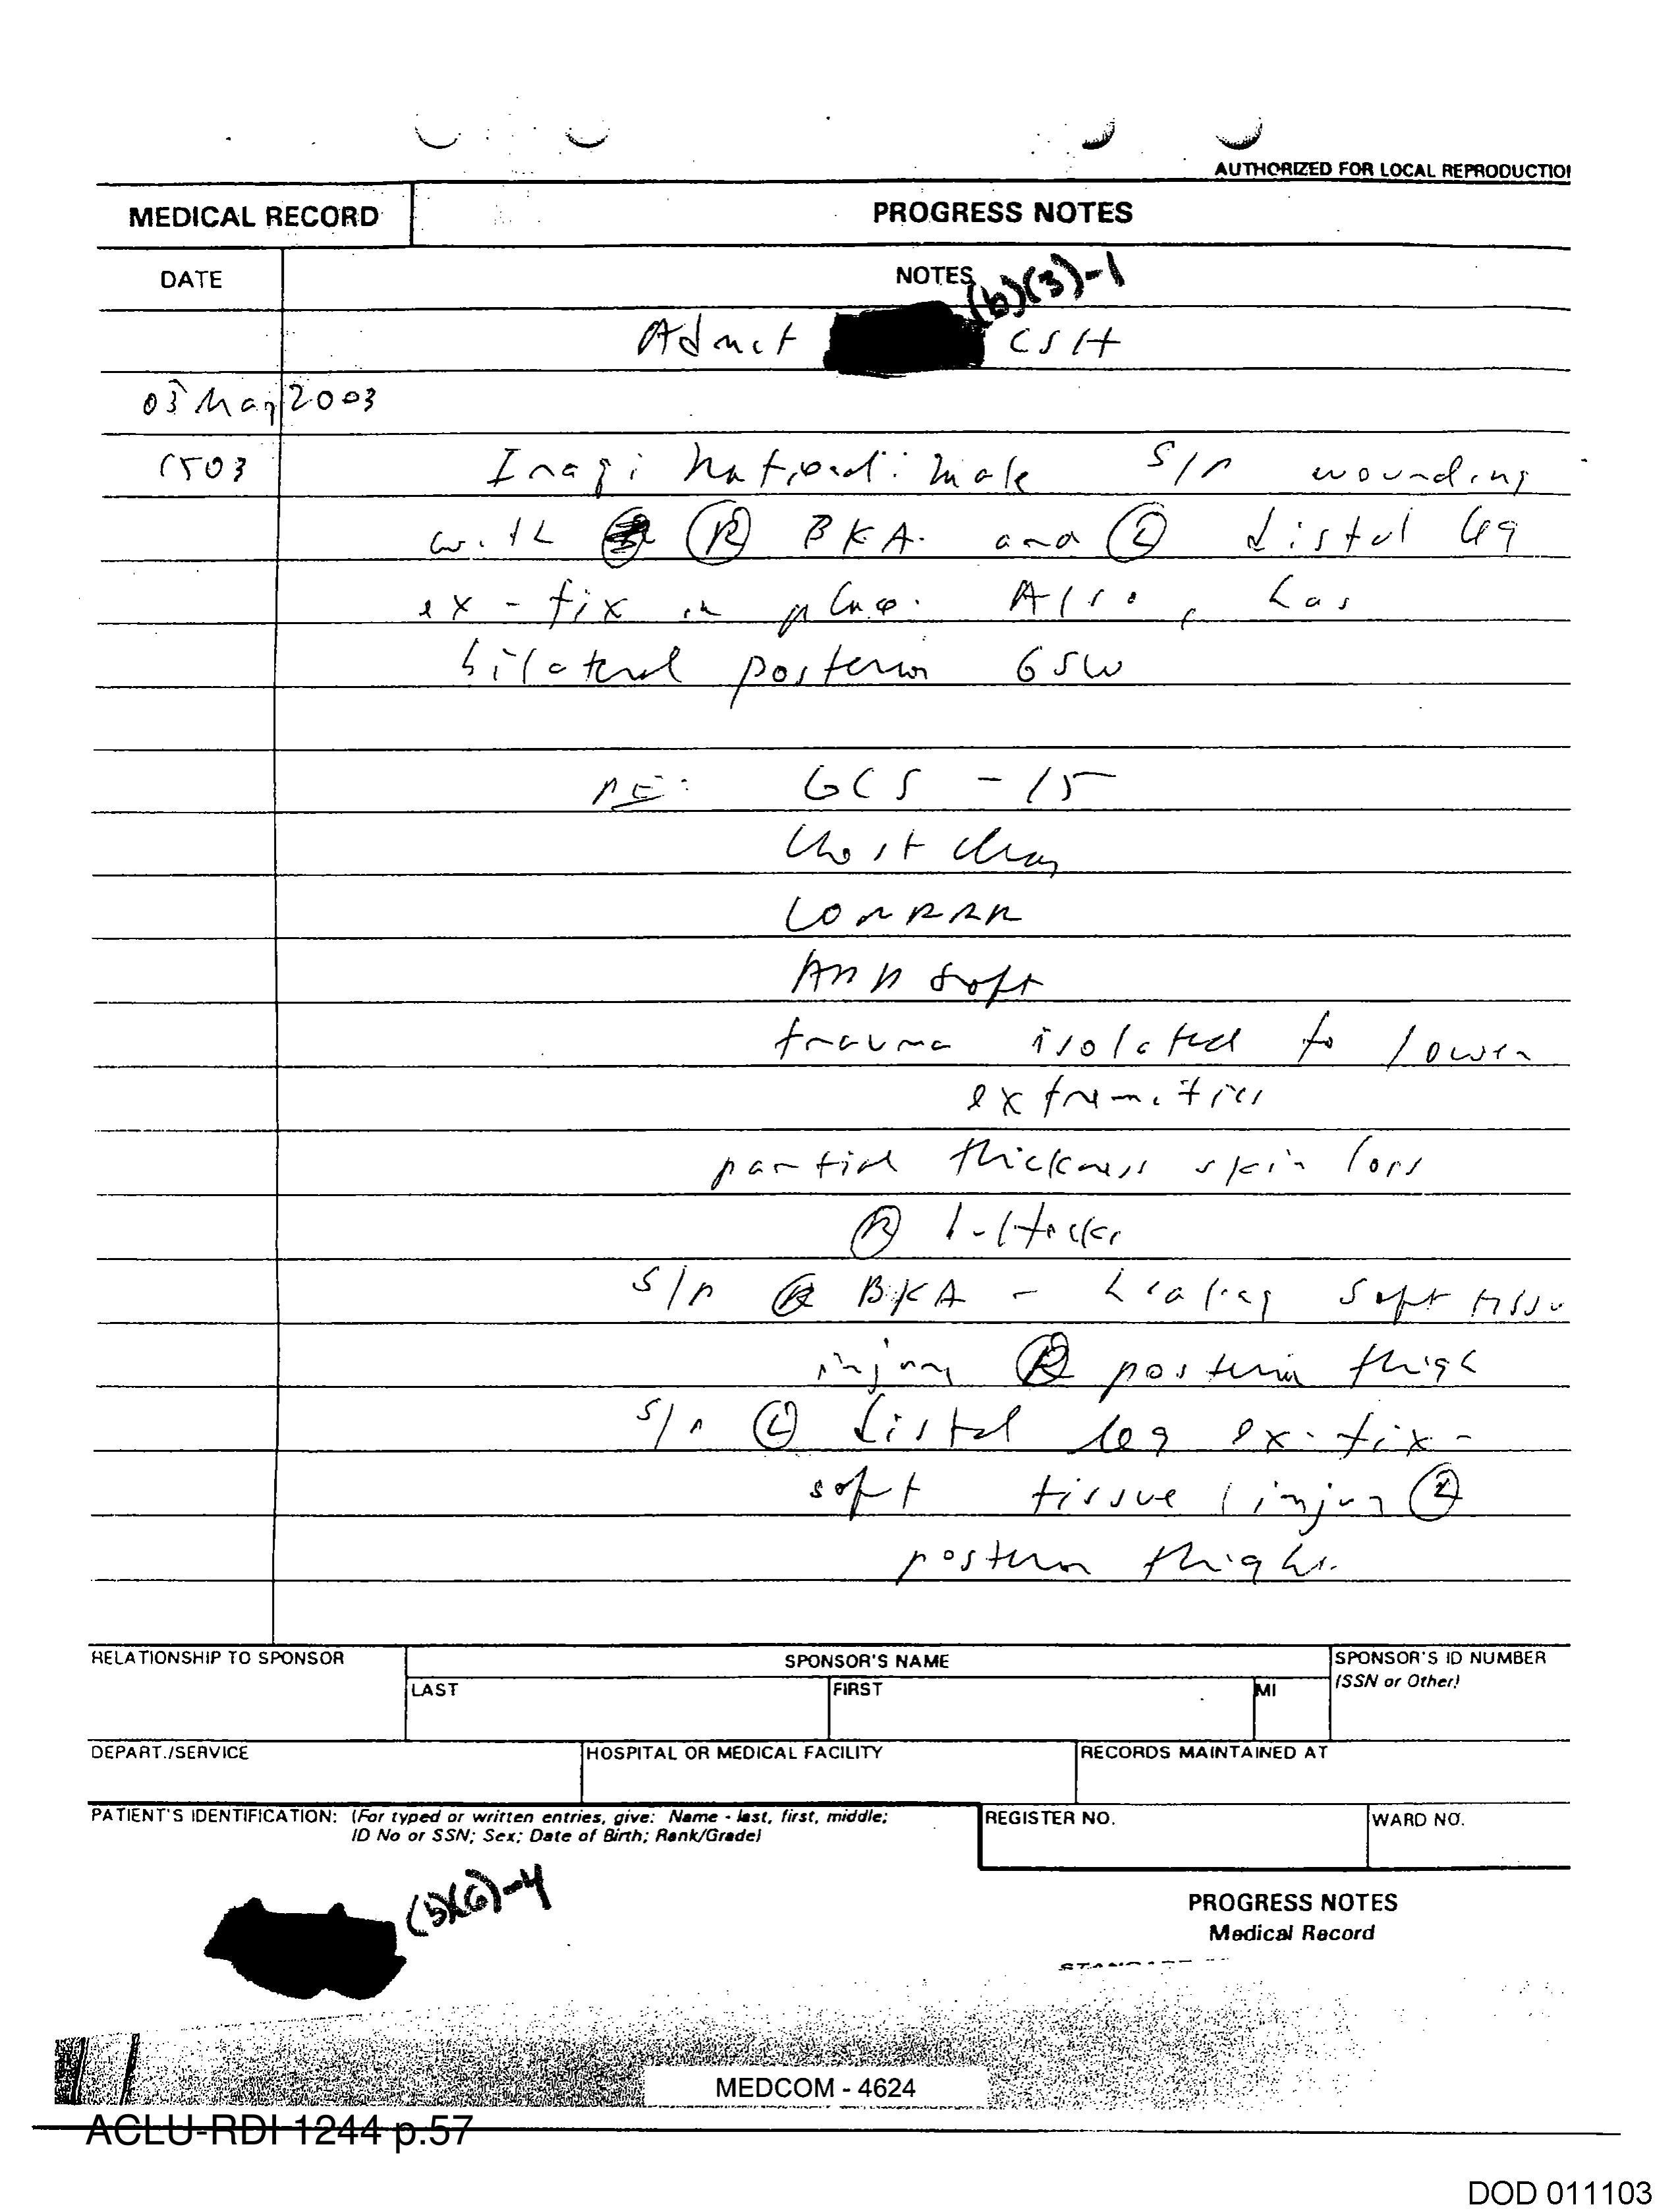 AUTHORIZED FOR LOCAL REPRODUCTIO
MEDICAL RECORD
PROGRESS NOTES
DATE
NOTES
(b)(3)-1
Admit CSH
03 May 2003
1503 Iraqi National: Male S/P wounding
with (R) BKA. and (L) distal leg
ex-fix in place. Also, has
bilateral posterior GSW
PE: GCS - 15
Chest clear
COR RRR
ABD soft
trauma isolated to lower
extremities
partial thickness skin loss
(R) buttocks
S/P (R) BKA - healing soft tissue
injury (R) posterior thigh
S/P (L) distal leg ex-fix -
soft tissue injury (L)
posterior thigh.
RELATIONSHIP TO SPONSOR
SPONSOR'S NAME
SPONSOR'S ID NUMBER
(SSN or Other)
LAST
FIRST
MI
DEPART./SERVICE
HOSPITAL OR MEDICAL FACILITY
RECORDS MAINTAINED AT
PATIENT'S IDENTIFICATION: (For typed or written entries, give: Name - last, first, middle;
ID No or SSN; Sex; Date of Birth; Rank/Grade)
REGISTER NO.
WARD NO.
(b)(6)-4
PROGRESS NOTES
Medical Record
MEDCOM - 4624
ACLU-RDI 1244 p.57
DOD 011103